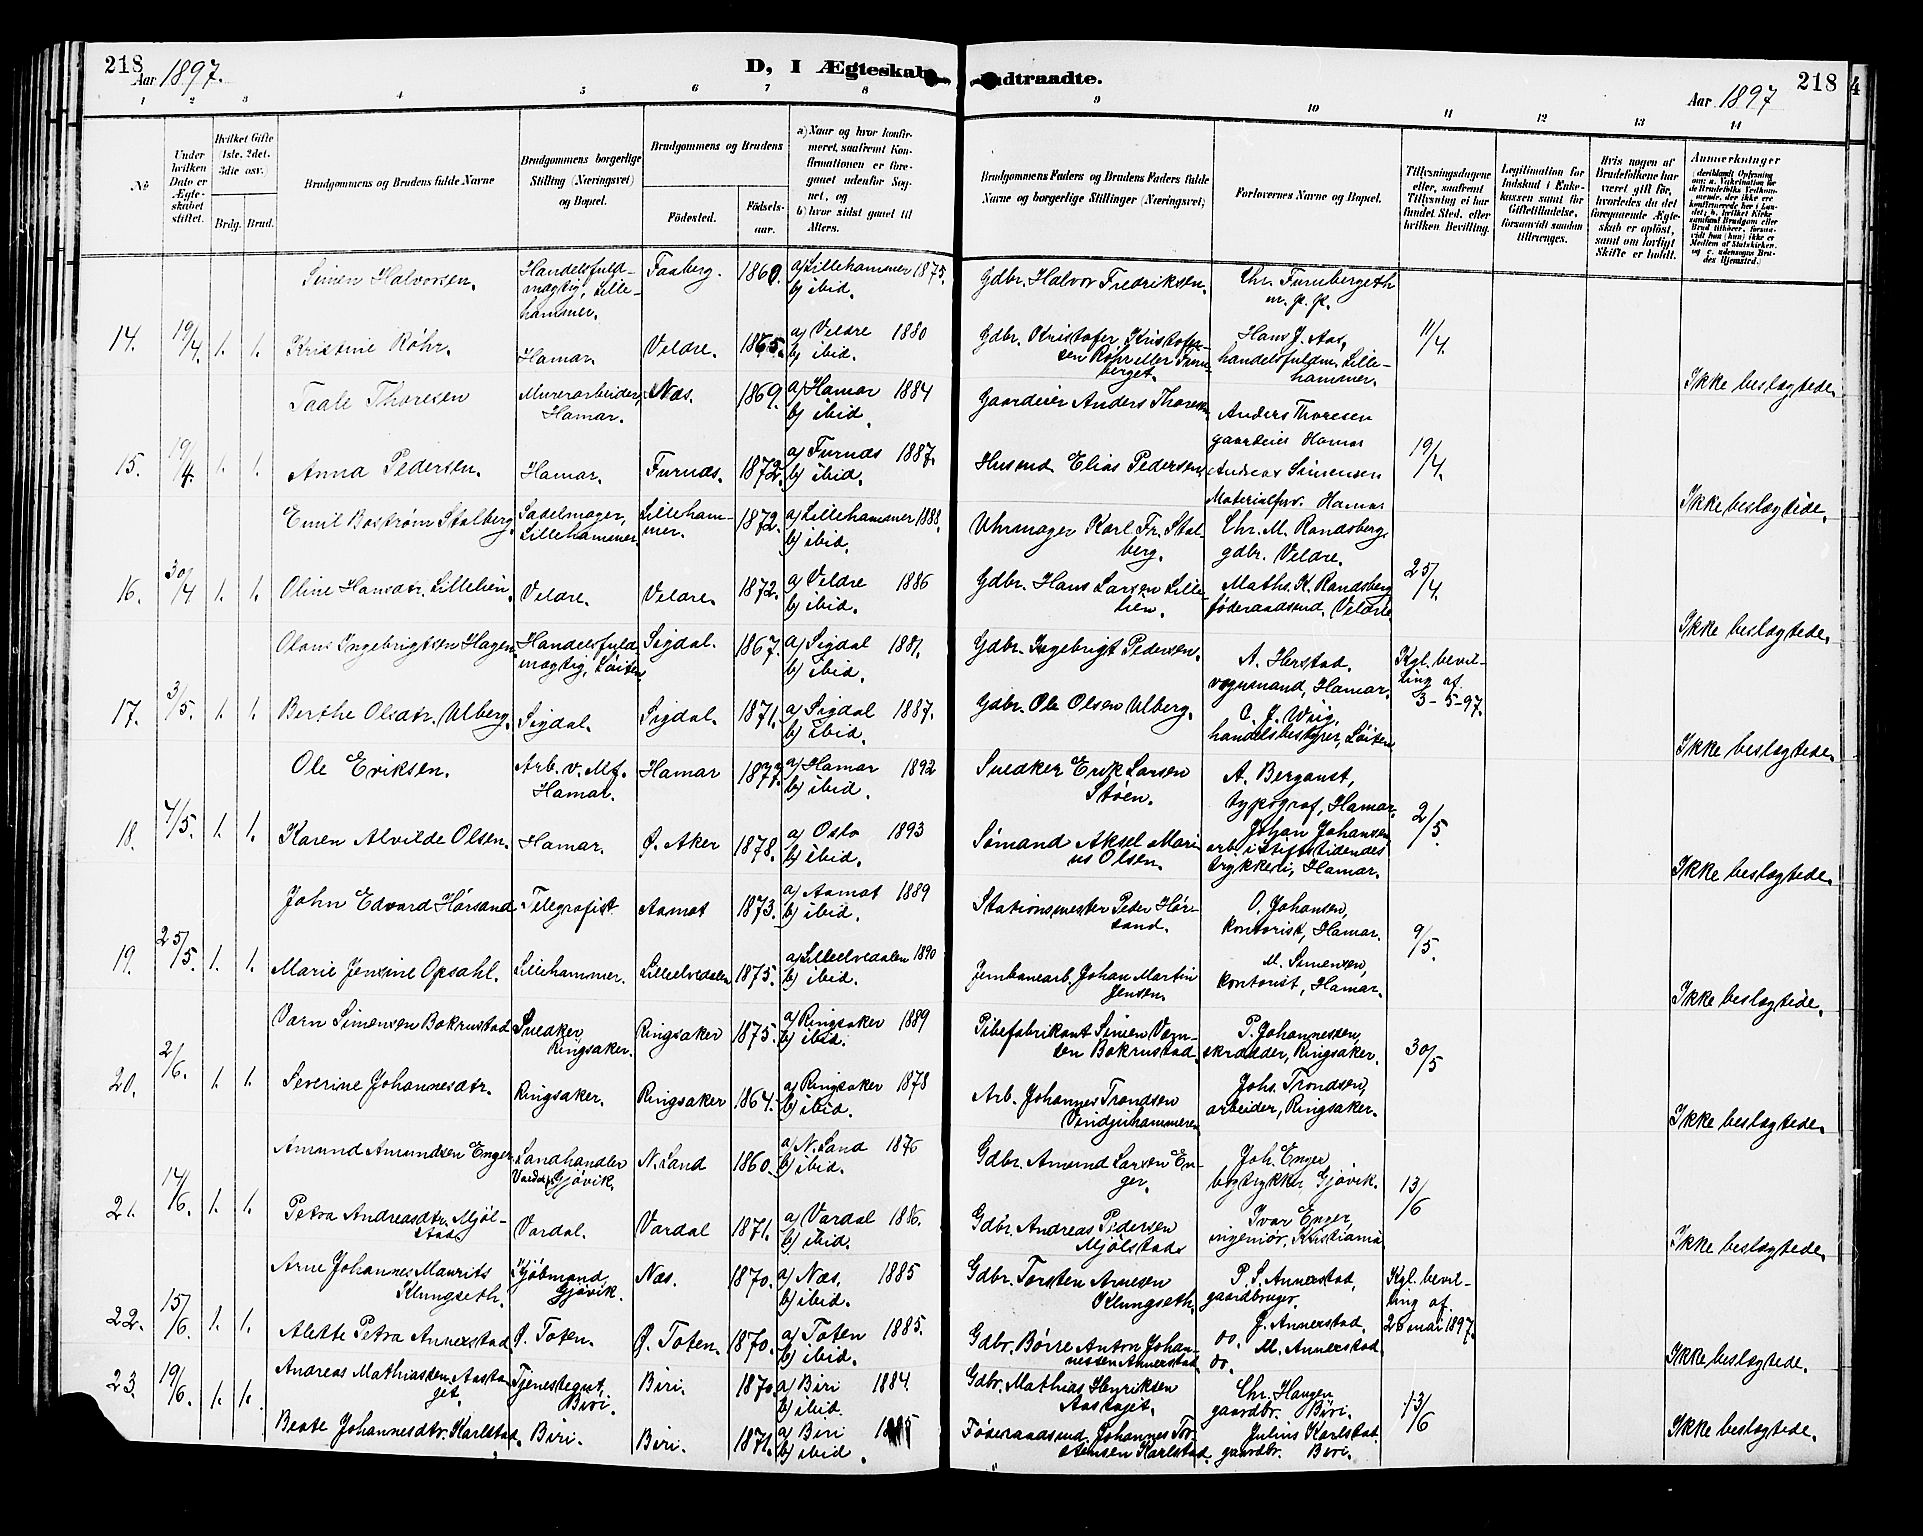 218
Aar 1897.
D, I Ægteskab indtraadte.
218
Aar 1897
4
1 2 3 4 5 6 7 8 9 10 11 12 13 14
No
Under hvilken Dato er Ægteskabet stiftet.
Hvilket Gifte (1ste, 2det, 3die osv.)
Brdg. Brud.
Brudgommens og Brudens fulde Navne
Brudgommens borgerlige Stilling (Næringsvei) og Bopæl.
Brudgommens og Brudens
Födested.
Födselsaar.
a) Naar og hvor konfirmeret, saafremt Konfirmationen er foregaaet udenfor Sognet, og
b) hvor sidst gaaet til Alters.
Brudgommens Faders og Brudens Faders fulde Navne og borgerlige Stillinger (Næringsvei)
Forlovernes Navne og Bopæl.
Tillysningsdagene eller, saafremt Tillysning ei har fundet Sted, efter hvilken Bevilling.
Legitimation for Indskud i Enkekassen samt for Giftetilladelse, forsaavidt saadan tiltrænges.
Hvis nogen af Brudefolkene har været gift för, hvorledes da det foregaaende Ægteskab er oplöst, samt om lovligt Skifte er holdt.
Anmerkninger
Simen Halvorsen.
Handelsfuldmægtig, Lillehammer.
Faaberg.
1860.
a) Lillehammer 1875.
b) ibid.
Gdbr. Halvor Fredriksen.
Chr. Furubergeth
m. p. p.
14. 19/4. 1. 1.
Kristine Röhr.
Hamar.
Veldre.
1865.
a) Veldre 1880
b) ibid.
Gdbr. Kristofer Kristoffersen Röhr eller Furuberget.
Hans J. Aas,
handelsfuldm. Lillehammer.
11/4.
Ikke beslægtede.
Taale Thoresen
Murerarbeider, Hamar.
Næs.
1869.
a) Hamar 1884
b) ibid.
Gaardeier Anders Thoresen
Anders Thoresen
gaardeier Hamar
15. 19/4. 1. 1.
Anna Pedersen.
Hamar.
Furnæs.
1872.
a) Furnæs 1887.
b) ibid.
Husmd Elias Pedersen
Andreas Simensen
Materialforv. Hamar
19/4.
Ikke beslægtede.
Emil Boström Stalberg.
Sadelmager, Lillehammer.
Lillehammer.
1872.
a) Lillehammer 1888.
b) ibid.
Uhrmager Karl Fr. Stalberg.
Chr. M. Randsberg,
gdbr. Veldre.
16. 30/4 1. 1.
Oline Hansdtr. Lillehien.
Veldre.
Veldre.
1872.
a) Veldre 1886
b) ibid.
Gdbr. Hans Larsen Lillehien.
Maths. K. Randsberg
föderaadsmd, Veldre.
25/4.
Ikke beslægtede.
Olaus Ingebrigtsen Hagen.
Handelsfuldmægtig, Löiten
Sigdal.
1867.
a) Sigdal 1881.
b) ibid.
Gdbr. Ingebrigt Pedersen.
A. Herstad,
vognmand, Hamar.
Kgl. bevilling af
3-5-97.
17. 3/5. 1. 1.
Berthe Olsdtr. Ulberg.
Sigdal.
Sigdal.
1871.
a) Sigdal 1887.
b) ibid.
Gdbr. Ole Olsen Ulberg.
C. J. Wiig,
handelsbestyrer, Löiten
Ikke beslægtede.
Ole Eriksen.
Arb. v. Mf. Hamar.
Hamar
1877.
a) Hamar 1892
b) ibid.
Snedker Erik Larsen Stöen.
A. Berganst,
typograf, Hamar.
18. 7/5. 1. 1.
Karen Alvilde Olsen.
Hamar.
Ø. Aker
1878.
a) Oslo 1893
b) ibid.
Sömand Aksel Marius Olsen.
Johan Johansen
arb. i Stiftstidendes trykkeri, Hamar.
2/5.
Ikke beslægtede.
John Edvard Hörsand.
Telegrafist
Aamot
1873.
a) Aamot 1889
b) ibid.
Stationsmester Peder Hörsand.
O. Johansen,
kontorist, Hamar.
19. 25/5. 1. 1.
Marie Jensine Opsahl.
Lillehammer.
Lilleelvedalen
1875.
a) Lilleelvedalen 1890
b) ibid.
Jernbanearb. Johan Martin Jensen.
M. Simensen,
kontorist, Hamar.
9/5.
Ikke beslægtede.
Varn Simensen Bakrustad
Snedker Ringsaker.
Ringsaker
1875.
a) Ringsaker 1889
b) ibid.
Pibefabrikant Simen Varnsen Bakrustad.
P. Johannessen,
skrædder, Ringsaker.
20. 2/6. 1. 1.
Severine Johannesdtr.
Ringsaker.
Ringsaker
1864.
a) Ringsaker 1878
b) ibid.
Arb. Johannes Trondsen Vindjuhammeren
Johs. Trondsen,
arbeider, Ringsaker.
30/5
Ikke beslægtede.
Amund Amundsen Enger
Landhandler Vardal, Gjövik.
N. Land
1860.
a) N. Land 1876
b) ibid.
Gdbr. Amund Larsen Enger.
Joh. Enger
bogtrykker Gjövik.
21. 14/6. 1. 1.
Petra Andreasdtr. Mjölstad.
Vardal.
Vardal
1871.
a) Vardal 1886.
b) ibid.
Gdbr. Andreas Pedersen Mjölstad.
Ivar Enger,
ingeniör, Kristiania
13/6
Ikke beslægtede.
Arne Johannes Maurits Klungseth.
Kjöbmand, Gjövik.
Næs.
1870.
a) Næs. 1885
b) ibid.
Gdbr. Torsten Arnesen Klungseth.
P. S. Annerstad,
gaardbruger.
Kgl. bevilling af.
26 mai 1897.
22. 15/6. 1. 1.
Alette Petra Annerstad
Ø. Toten.
Ø. Toten.
1870.
a) Toten 1885.
b) ibid.
Gdbr. Börre Anton Johannessen Annerstad
J. Annerstad,
do. M. Annerstad
do.
Ikke beslægtede.
23. 19/6. 1. 1.
Andreas Mathiassen Aastaget.
Tjenestegut, Biri.
Biri.
1870
a) Biri 1884.
b) ibid.
Gdbr. Mathias Henriksen Aastaget.
Chr. Haugen
gaardbr. Biri.
13/6
Beate Johannesdtr. Karlstad.
Biri.
Biri.
1871.
a) Biri
b) ibid.
Föderaadsmd. Johannes Torstensen Karlstad.
Julius Karlstad,
gaardbr. Biri.
Ikke beslægtede.